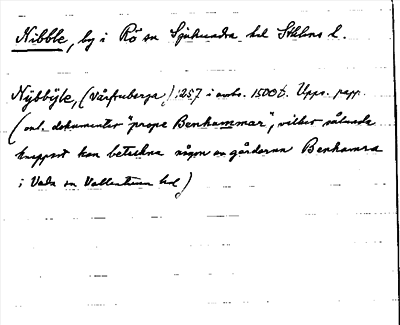 Nibble, by i Rö sn Sjuhundra hd Sthlms l.
Nybbyle, (Vårfruberga) 257 i avs. 1500t. Upps. papp.
(enl. dokumentet "prope Benhammar", vilket således
knappast kan beteckna någon av gårdarna Benhamra
i Vada sn Vallentuna hd)